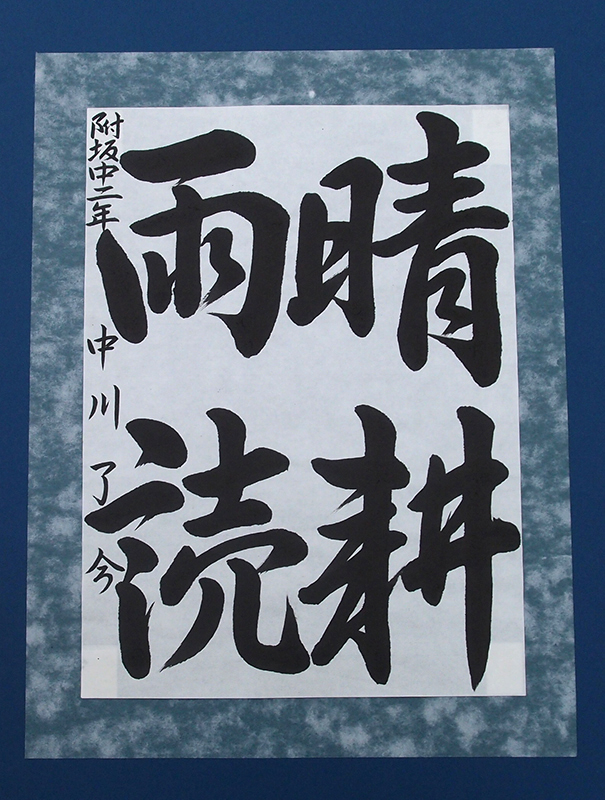 晴耕
雨読
附坂中二年 中川了今